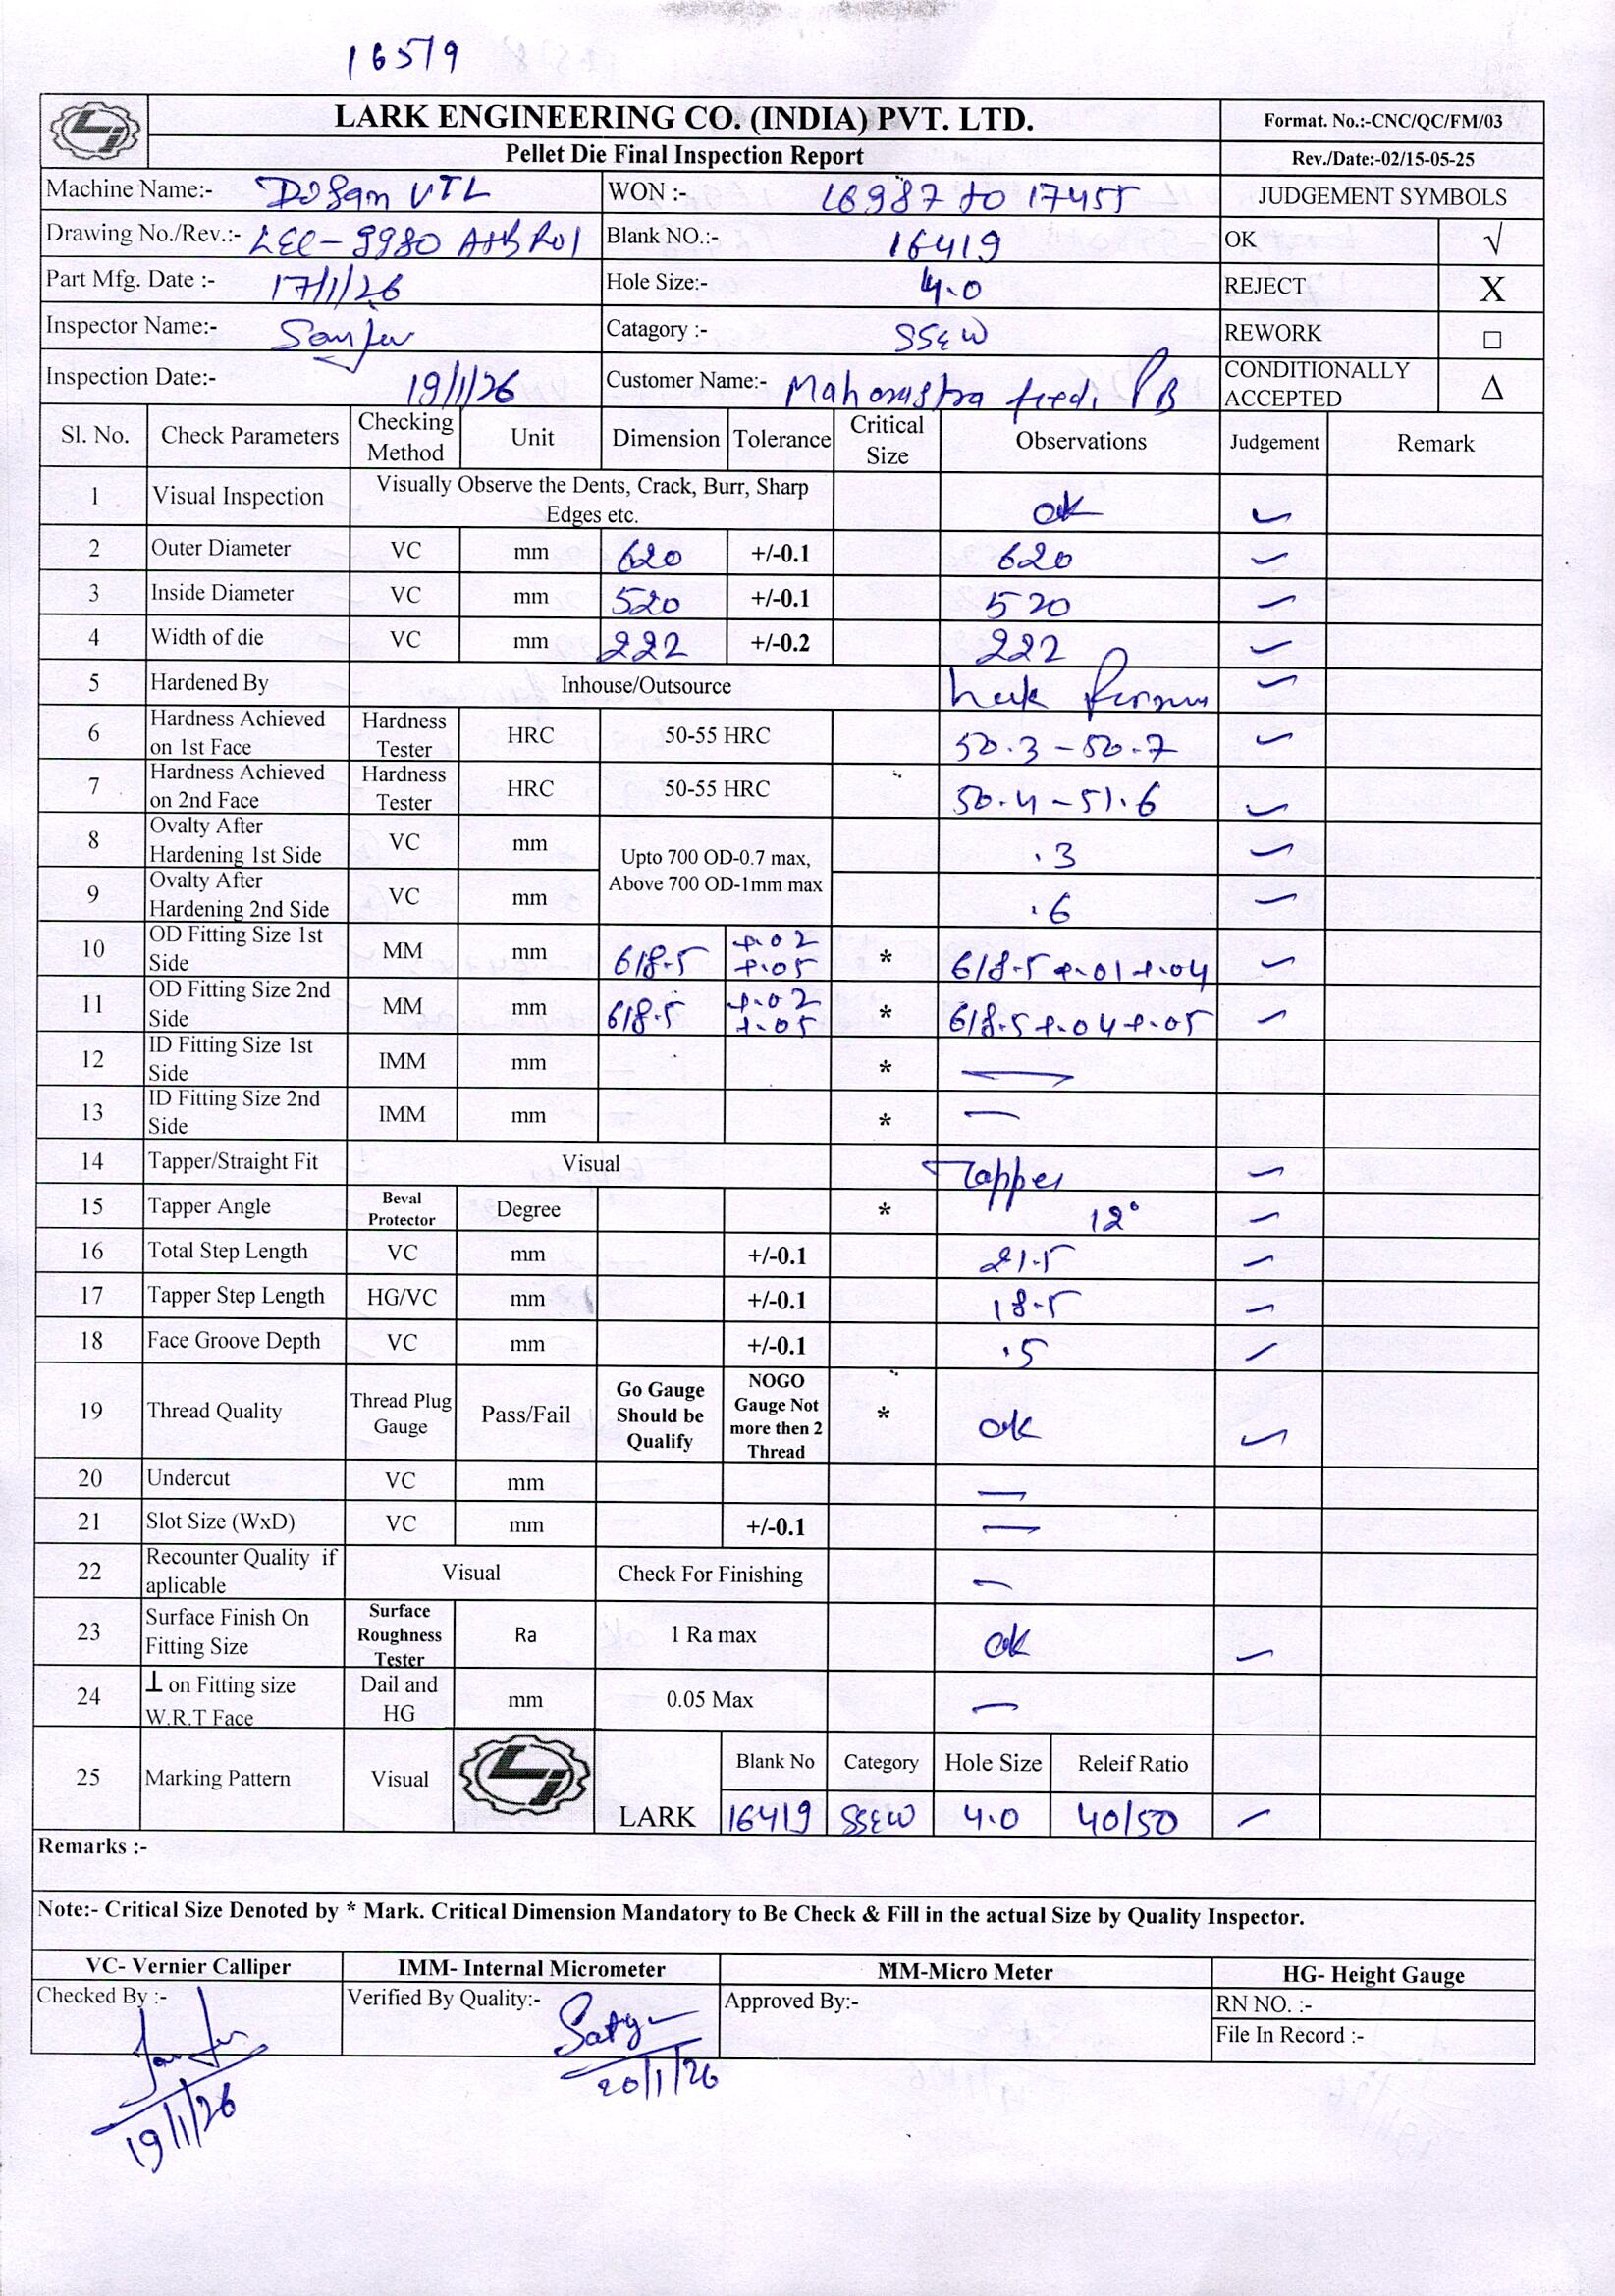 16519
LARK ENGINEERING CO. (INDIA) PVT. LTD.
Format. No.:-CNC/QC/FM/03
Pellet Die Final Inspection Report
Rev./Date:-02/15-05-25
Machine Name:- VTL WON :- 16987 to 17455 JUDGEMENT SYMBOLS
Drawing No./Rev.:- LEC-9980 A+B R01 Blank NO.:- 16419 OK √
Part Mfg. Date :- 17/1/26 Hole Size:- 4.0 REJECT X
Inspector Name:- Catagory :- SS&W REWORK □
Inspection Date:- 19/1/26 Customer Name:- feed, PB CONDITIONALLY ACCEPTED Δ
Sl. No. Check Parameters Checking Method Unit Dimension Tolerance Critical Size Observations Judgement Remark
1 Visual Inspection Visually Observe the Dents, Crack, Burr, Sharp Edges etc. ok ✓
2 Outer Diameter VC mm 620 +/-0.1 620 ✓
3 Inside Diameter VC mm 520 +/-0.1 520 ✓
4 Width of die VC mm 222 +/-0.2 222 ✓
5 Hardened By Inhouse/Outsource ✓
6 Hardness Achieved on 1st Face Hardness Tester HRC 50-55 HRC 50.3-50.7 ✓
7 Hardness Achieved on 2nd Face Hardness Tester HRC 50-55 HRC 50.4-51.6 ✓
8 Ovalty After Hardening 1st Side VC mm Upto 700 OD-0.7 max, Above 700 OD-1mm max .3 ✓
9 Ovalty After Hardening 2nd Side VC mm .6 ✓
10 OD Fitting Size 1st Side MM mm 618.5 +.02 +.05 * 618.5 +.01 +.04 ✓
11 OD Fitting Size 2nd Side MM mm 618.5 +.02 +.05 * 618.5 +.04 +.05 ✓
12 ID Fitting Size 1st Side IMM mm * —
13 ID Fitting Size 2nd Side IMM mm * —
14 Tapper/Straight Fit Visual Tapper ✓
15 Tapper Angle Beval Protector Degree * 12° ✓
16 Total Step Length VC mm +/-0.1 21.5 ✓
17 Tapper Step Length HG/VC mm +/-0.1 18.5 ✓
18 Face Groove Depth VC mm +/-0.1 .5 ✓
19 Thread Quality Thread Plug Gauge Pass/Fail Go Gauge Should be Qualify NOGO Gauge Not more then 2 Thread * ok ✓
20 Undercut VC mm —
21 Slot Size (WxD) VC mm +/-0.1 —
22 Recounter Quality if aplicable Visual Check For Finishing —
23 Surface Finish On Fitting Size Surface Roughness Tester Ra 1 Ra max ok ✓
24 ⊥ on Fitting size W.R.T Face Dail and HG mm 0.05 Max —
25 Marking Pattern Visual LARK Blank No Category Hole Size Releif Ratio
16419 SS&W 4.0 40/50 ✓
Remarks :-
Note:- Critical Size Denoted by * Mark. Critical Dimension Mandatory to Be Check & Fill in the actual Size by Quality Inspector.
VC- Vernier Calliper IMM- Internal Micrometer MM-Micro Meter HG- Height Gauge
Checked By :- Verified By Quality:- Approved By:- RN NO. :-
File In Record :-
20/1/26
19/1/26